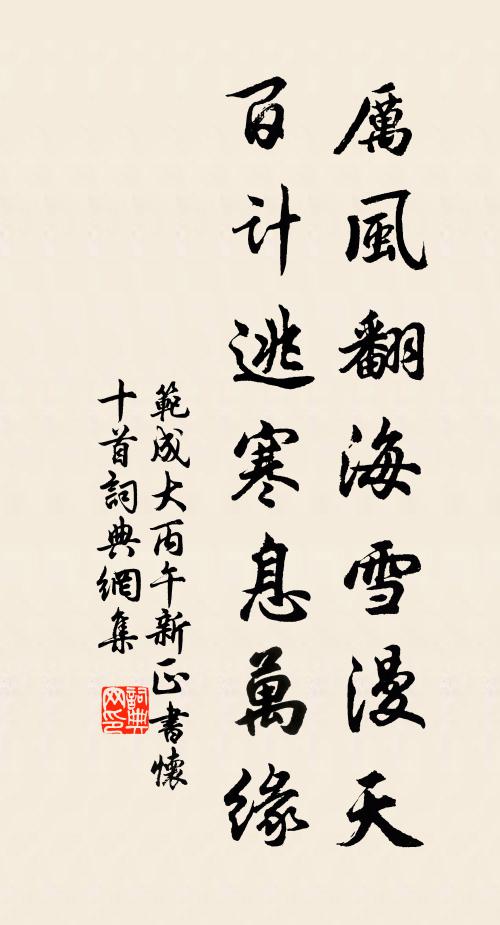 厲風翻海雪漫天
百计逃寒息萬緣
範成大丙午新正書懷
十首詞典網集
詞典
网印